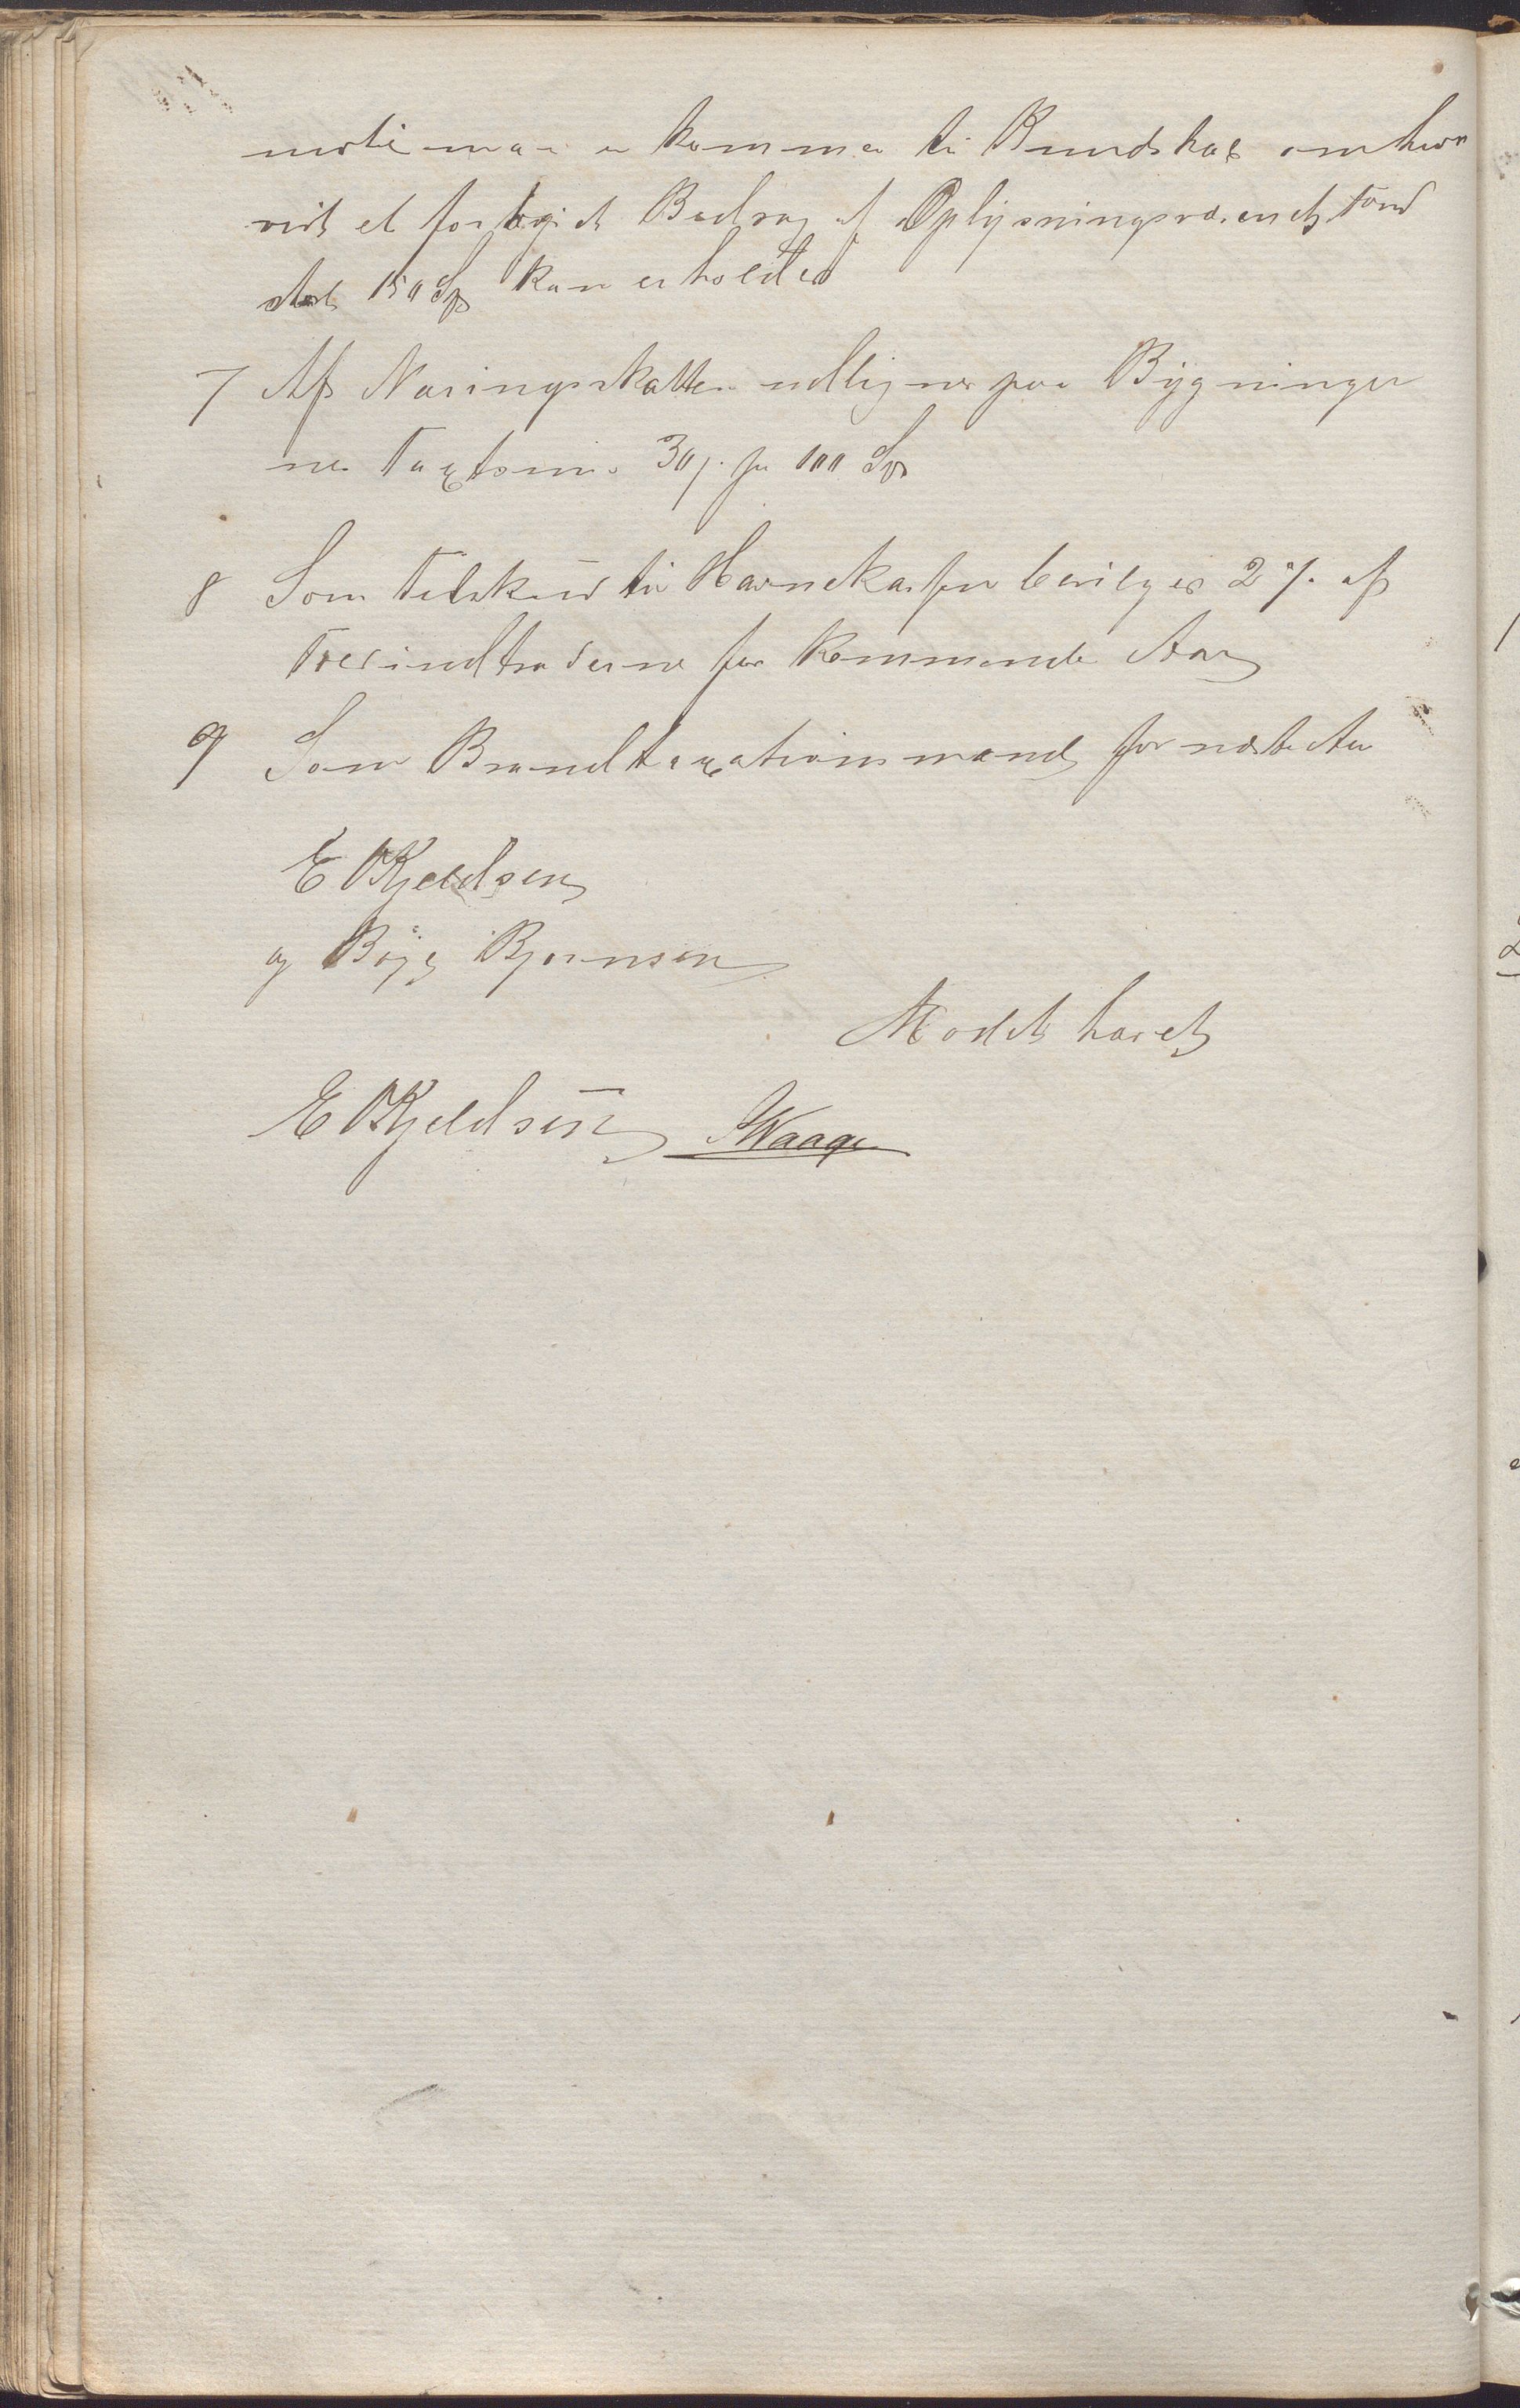 komme til Kundskab omhvor
vidt et forhøiet Bidrag af Oplysningsvæsenets Fond
stort 150 Spd kan erholdes
7 Af Næringsskatten udlignes paa Bygninger
nes Taxtsum 30 s. pr 100 Spd
8 Som Tilskud til Havnekassen bevilges 2 % af
Toldindtraderne for kommende Aar
9 Som Brandtaxationsmænd for næste Aar
E Kjeldsen
og Børg Bjørnsen
Mødet hævet
E Kjeldsen Waage